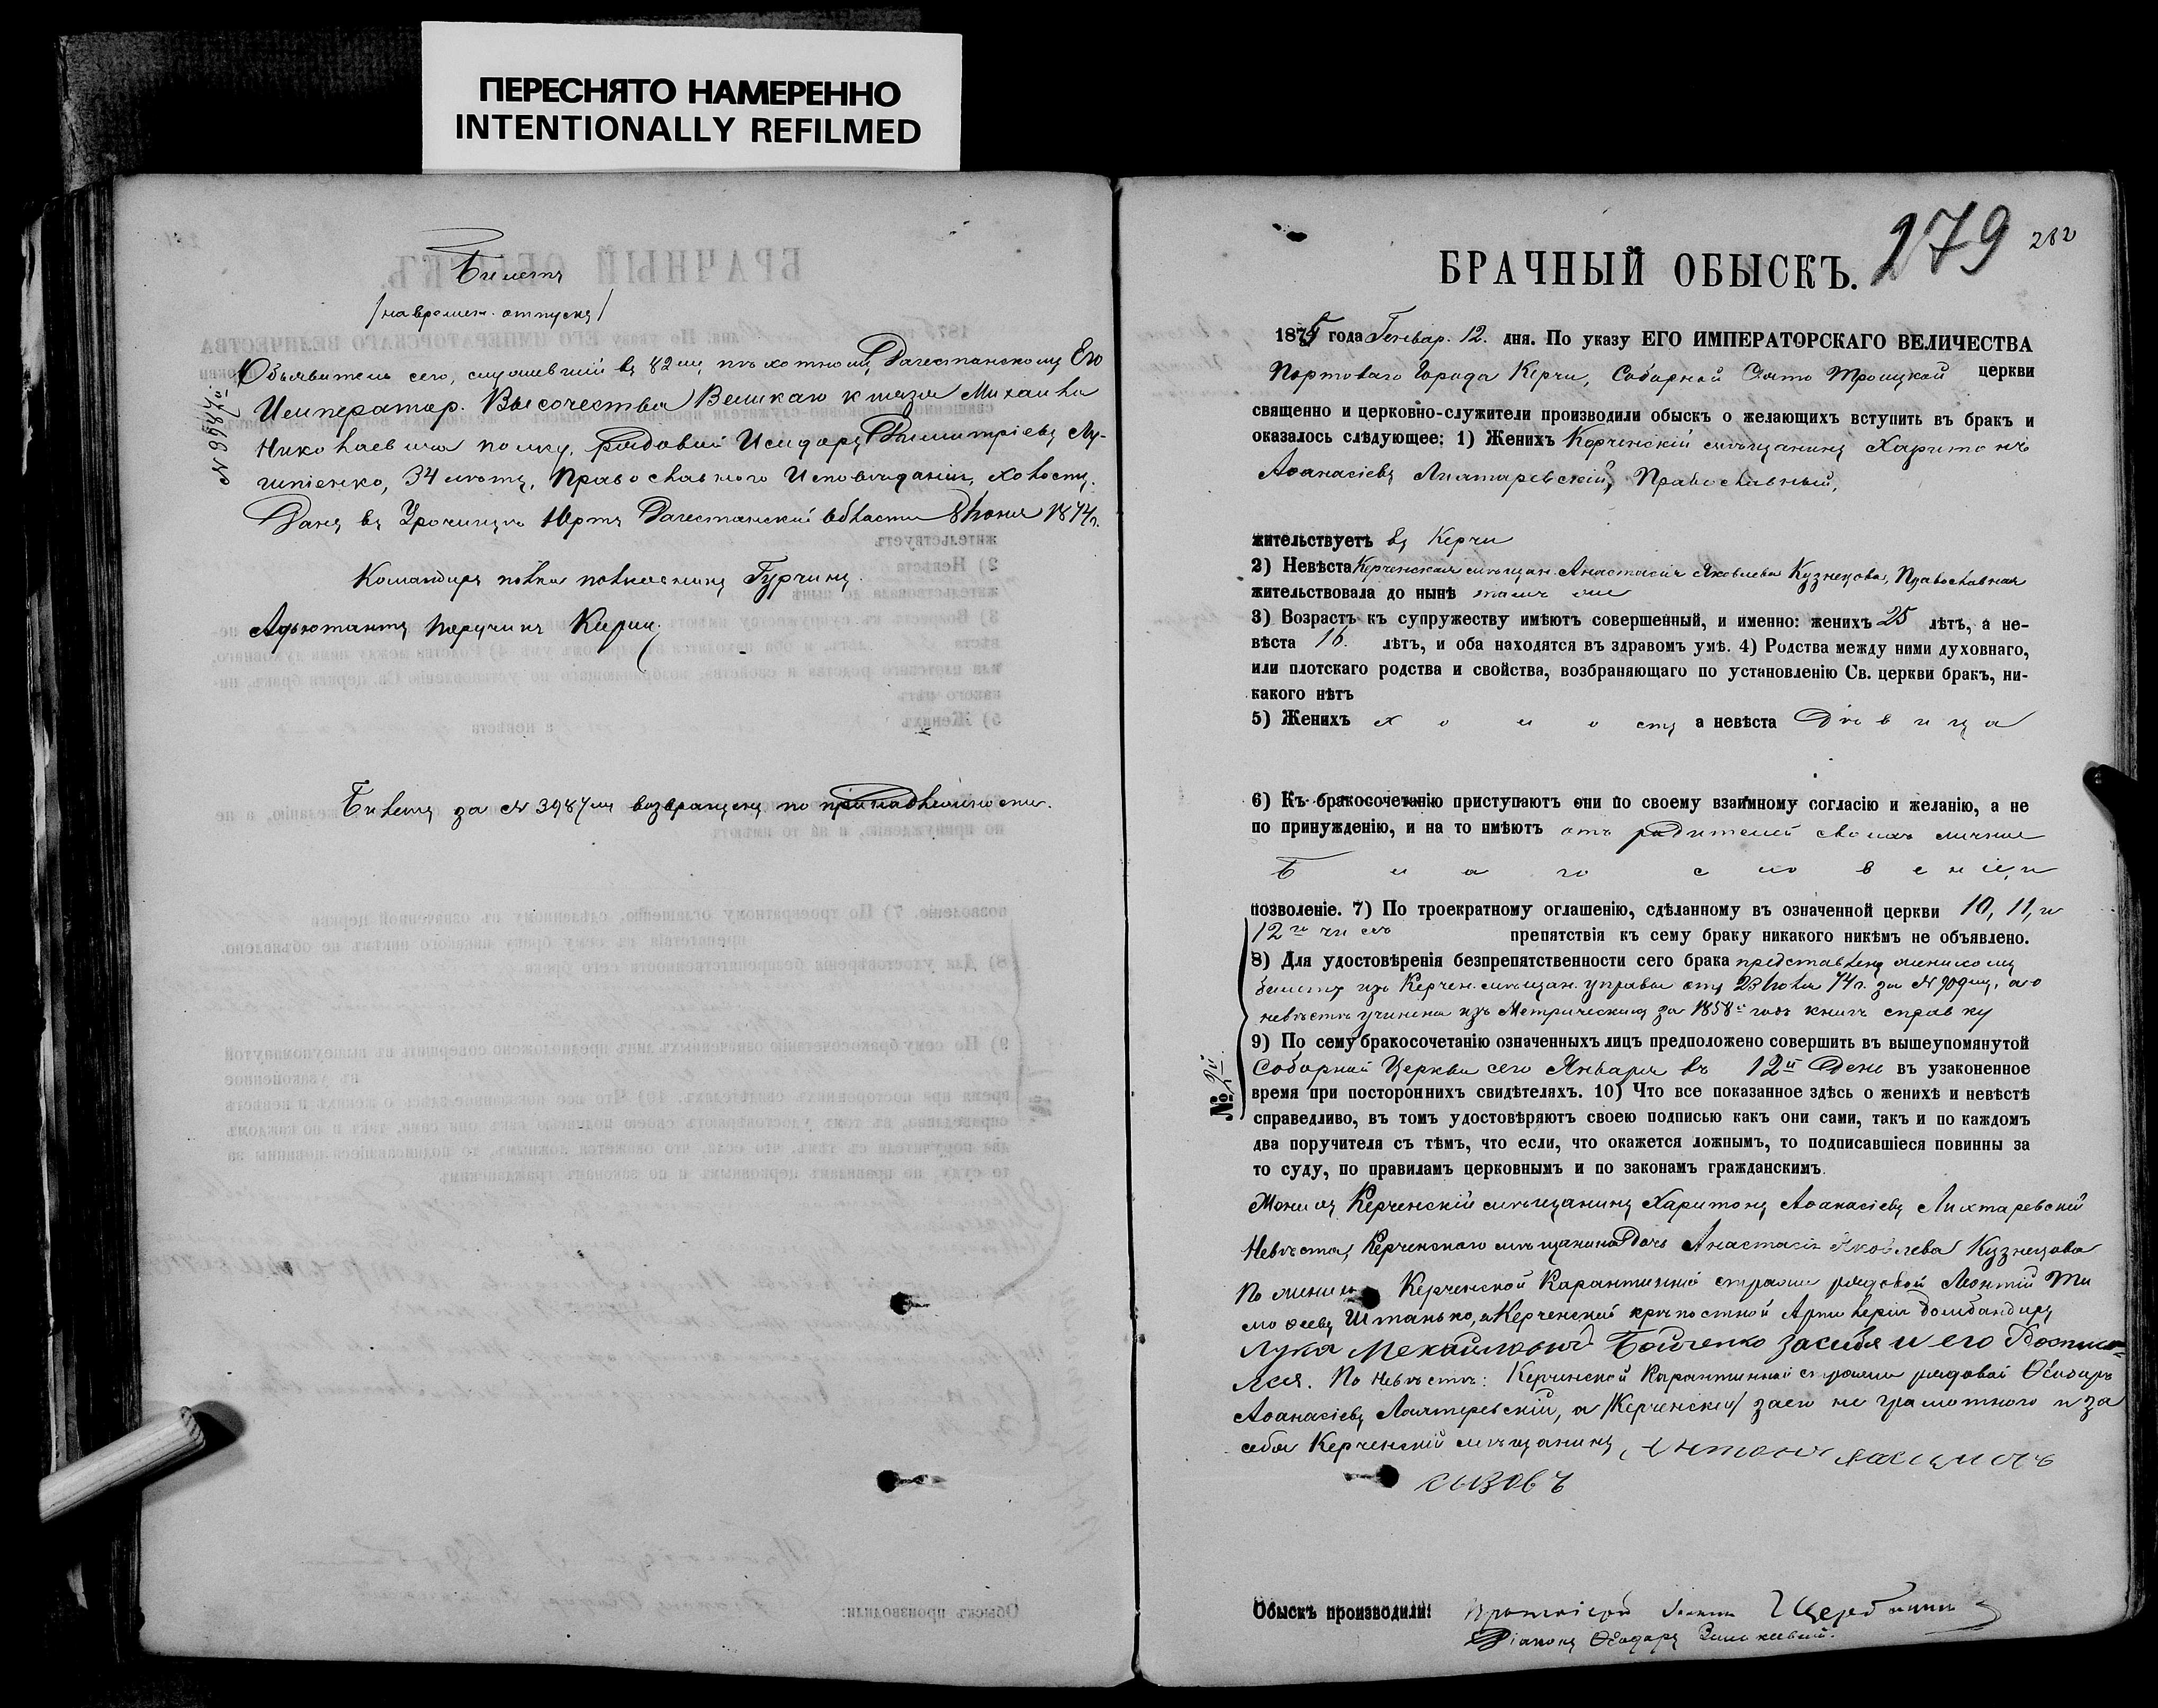 ПЕРЕСНЯТО НАМЕРЕННО
INTENTIONALLY REFILMED
Билетъ
/на времен. отпускъ/
№ 3987й.
Объявитель сего, служившій въ 82мъ пѣхотномъ Дагестанскому Его
Император. Высочества Великаго князя Михаила
Николаевича полку, рядовой Исидоръ Димитріевъ Лу-
шпіенко, 34 лѣтъ, Православнаго Исповѣданія, холостъ.
Данъ въ Урочищѣ Дагестанской Области 8 Іюня 1874г.
Командиръ полка полковникъ Гурчинъ.
Адъютантъ Поручикъ
Билетъ за № 3987мъ возвращенъ по принадлежности.
179 282
БРАЧНЫЙ ОБЫСКЪ.
1875 года Генвар. 12. дня. По указу ЕГО ИМПЕРАТОРСКАГО ВЕЛИЧЕСТВА
Портоваго Города Керчи, Соборной Свято Троицкой церкви
священно и церковно-служители производили обыскъ о желающихъ вступить въ бракъ и
оказалось слѣдующее: 1) Женихъ Керченскій мѣщанинъ Харитонъ
Аѳанасіевъ Лихтаревскій, Православный,
жительствуетъ въ Керчи
2) Невѣста Керченская мѣщан. Анастасія Яковлева Кузнецова, Православная
жительствовала до нынѣ тамъ же
3) Возрастъ къ супружеству имѣютъ совершенный, и именно: женихъ 25 лѣтъ, а не-
вѣста 16. лѣтъ, и оба находятся въ здравомъ умѣ. 4) Родства между ними духовнаго,
или плотскаго родства и свойства, возбраняющаго по установленію Св. церкви бракъ, ни-
какого нѣтъ
5) Женихъ холостъ а невѣста Дѣвица
6) Къ бракосочетанію приступаютъ они по своему взаимному согласію и желанію, а не
по принужденію, и на то имѣютъ отъ родителей своихъ личное
Благословеніе и
позволеніе. 7) По троекратному оглашенію, сдѣланному въ означенной церкви 10, 11, и
12го числъ препятствія къ сему браку никакого никѣмъ не объявлено.
8) Для удостовѣренія безпрепятственности сего брака представленъ женихомъ
билетъ изъ Керчен. мѣщан. управы отъ 23 Іюля 74г. за № 909мъ, а о
невѣстѣ учинена изъ Метрическихъ за 1858й годъ книгъ справку
9) По сему бракосочетанію означенныхъ лицъ предположено совершить въ вышеупомянутой
Соборной Церкви сего Января въ 12й День въ узаконенное
время при постороннихъ свидѣтеляхъ. 10) Что все показанное здѣсь о женихѣ и невѣстѣ
№ 2й
справедливо, въ томъ удостовѣряютъ своею подписью какъ они сами, такъ и по каждомъ
два поручителя съ тѣмъ, что если, что окажется ложнымъ, то подписавшіеся повинны за
то суду, по правиламъ церковнымъ и по законамъ гражданскимъ.
Женихъ Керченскій мѣщанинъ Харитонъ Аѳанасіевъ Лихтаревскій
Невѣста, Керченскаго мѣщанина Дочь Анастасія Яковлева Кузнецова
По женихѣ Керченской Карантинной стражи рядовой Леонтій Ти
моѳеевъ Штанько, а Керченской крѣпостной Артилеріи Бомбандиръ
Лука Мехайловичъ Бойченко за себя и его Росписа=
лся. По Невѣстѣ: Керченской Карантинной стражи рядовой Ѳедоръ
Аѳанасіевъ Лихтеревскій, а /Керченскій/ за его не грамотного и за
себя Керченскій мѣщанинъ, Антонъ
сызовъ
Обыскъ производили: Протоіерей Іоаннъ
Діаконъ Ѳеодоръ